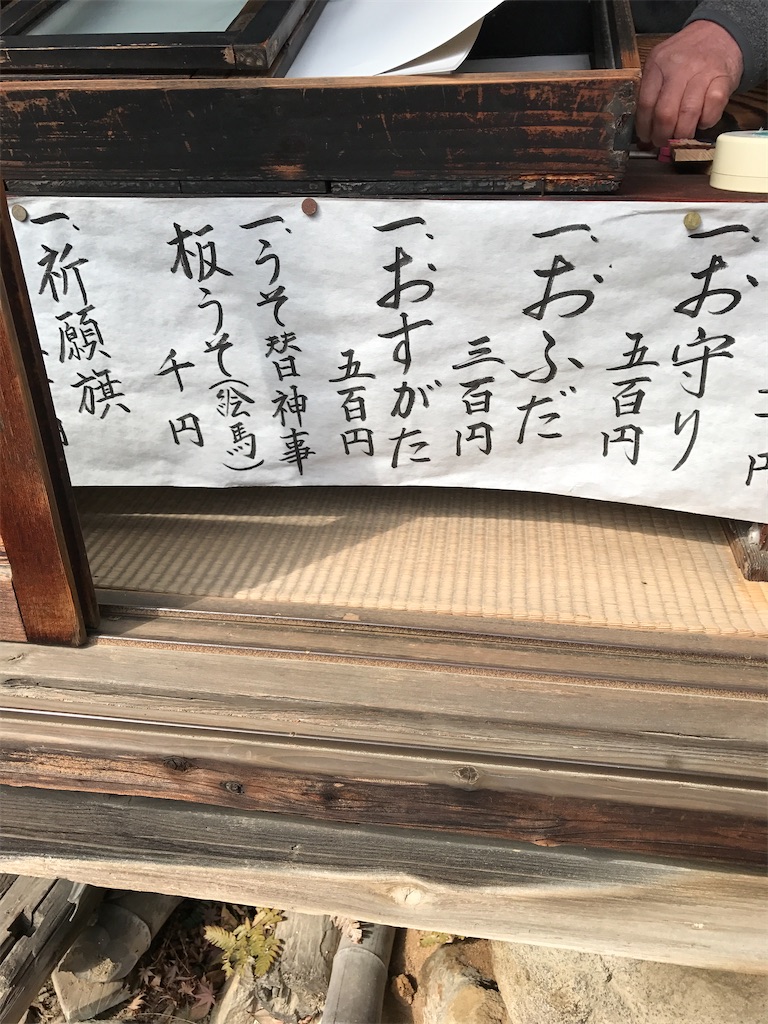 円
一、お守り
五百円
一、おふだ
三百円
一、おすがた
五百円
一、うそ替神事
板うそ(絵馬)
千円
一、祈願旗